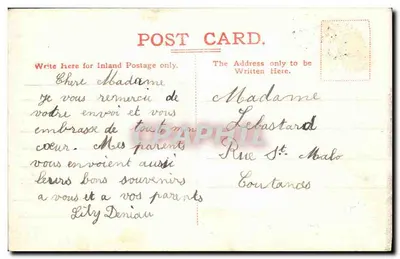 POST CARD.
Write here for Inland Postage only.
The Address only to be
Written Here.
Chere Madame
je vous remercie de
votre envoi et vous
embrasse de tout mon
cœur. Mes parents
vous envoient aussi
leurs bons souvenirs
a vous et a vos parents
Lily Deniau
Madame
Lebastard
Rue St. Malo
Coutances